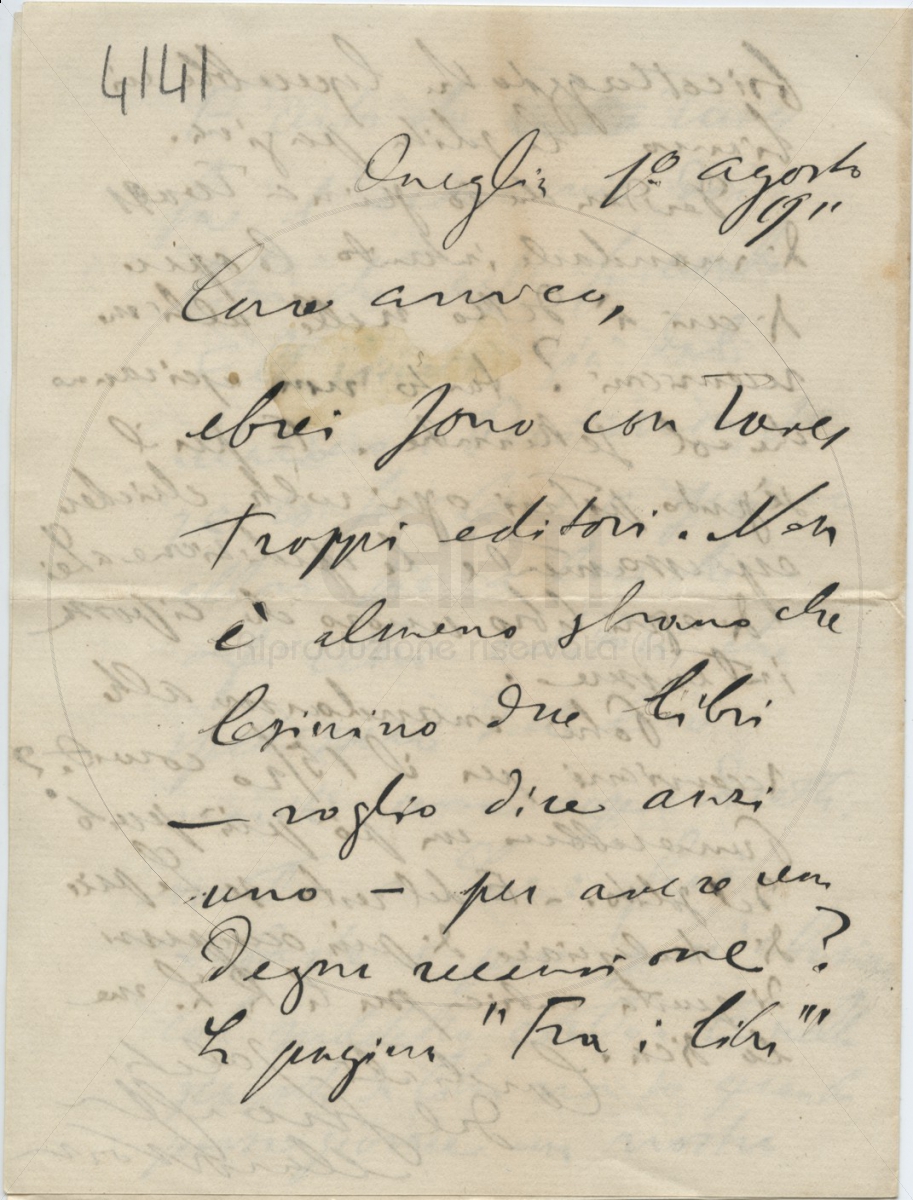 4141
Oneglia 1º agosto
1911
Caro amico,
ebrei sono con
troppi editori. Non
è almeno strano che
lesinino due libri
— voglio dire anzi
uno — per avere una
degna recensione?
La pagina "Fra i libri"
CHRIT
Riproduzione riservata (R)